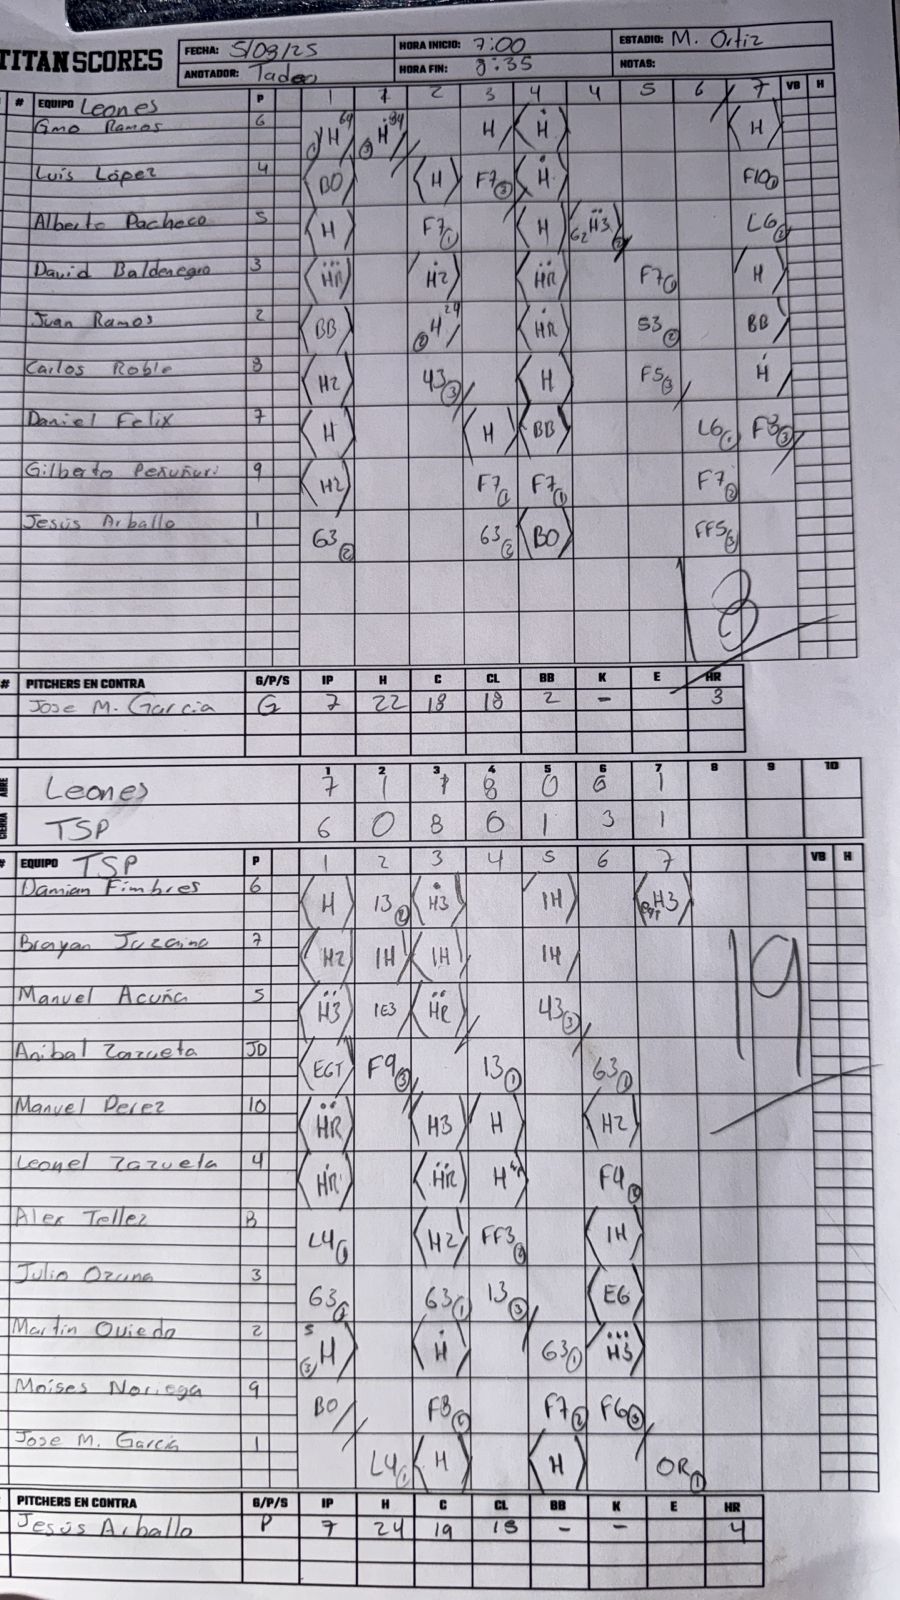 TITAN SCORES
FECHA: 5/03/25 HORA INICIO: 7:00 ESTADIO: M. Ortiz
ANOTADOR: Tadeo HORA FIN: 8:35 NOTAS:
# EQUIPO Leones P 1 1 2 3 4 4 5 6 7 VB H
Gmo Ramos 6 H H H H H
Luis López 4 BO H F7 H F10
Alberto Pacheco 5 H F7 H H3 L6
David Baldenegro 3 HR H2 HR F7 H
Juan Ramos 2 BB H HR 53 BB
Carlos Roble 8 H2 43 H F5 H
Daniel Felix 7 H H BB L6 F8
Gilberto Peñuñuri 9 H2 F7 F7 F7
Jesús Arballo 1 63 63 BO FF5
18
# PITCHERS EN CONTRA G/P/S IP H C CL BB K E HR
Jose M. Garcia G 7 22 18 18 2 - 3
1 2 3 4 5 6 7 8 9 10
ABRE Leones 7 1 1 8 0 0 1
CIERRA TSP 6 0 8 0 1 3 1
# EQUIPO TSP P 1 2 3 4 5 6 7 VB H
Damian Fimbres 6 H 13 H3 1H H3
Brayan 7 H2 1H 1H 1H
Manuel Acuña 5 H3 1E3 HR 43
Anibal Zazueta JD EGT F9 13 63
Manuel Perez 10 HR H3 H H2
Leonel Zazueta 4 HR HR H F4
Alex Tellez B L4 H2 FF3 1H
Julio Ozuna 3 63 63 13 E6
Martin Oviedo 2 H H 63 H3
Moises Noriega 9 BO F8 F7 F6
Jose M. Garcia 1 L4 H H OR
19
PITCHERS EN CONTRA G/P/S IP H C CL BB K E HR
Jesús Arballo P 7 24 19 18 - - 4